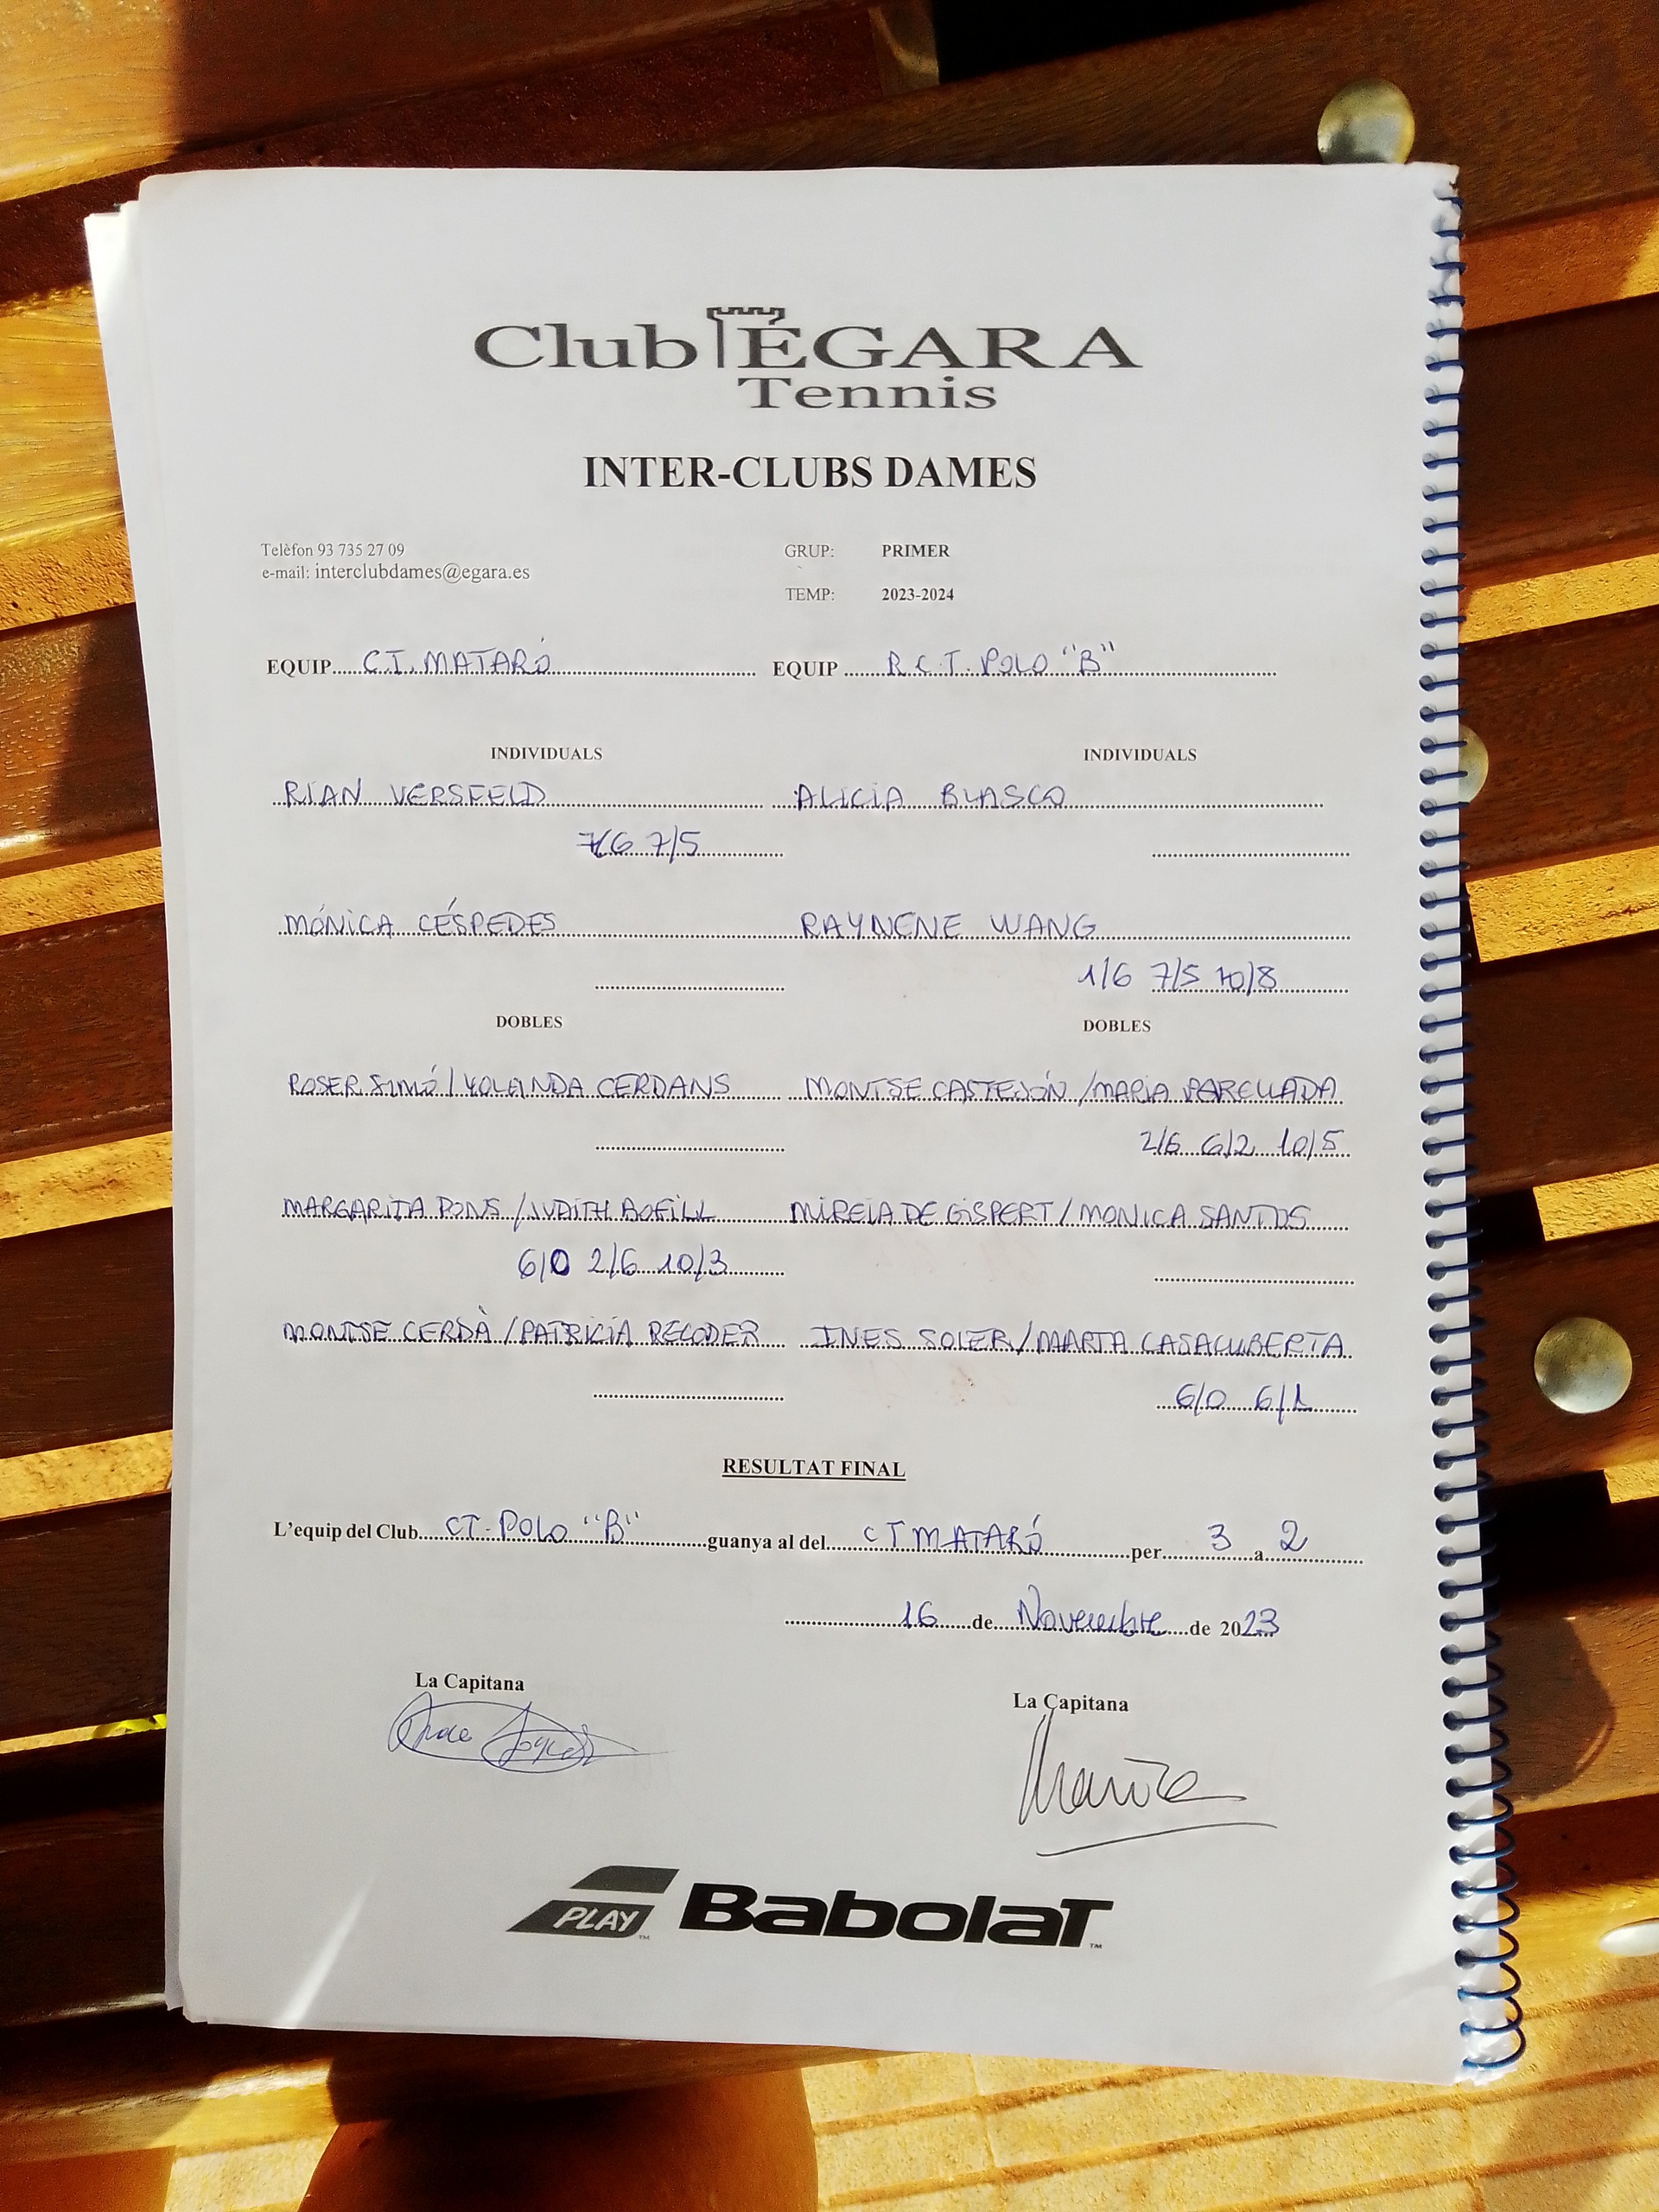 Club ÈGARA
Tennis
INTER-CLUBS DAMES
Telèfon 93 735 27 09
e-mail: interclubdames@egara.es
GRUP: PRIMER
TEMP: 2023-2024
EQUIP C.T. MATARÓ EQUIP R.C.T. POLO "B"
INDIVIDUALS INDIVIDUALS
RIAN VERSFELD ALICIA BLASCO
7/6 7/5
MÓNICA CÉSPEDES RAYNENE WANG
1/6 7/5 10/8
DOBLES DOBLES
ROSER SIMÓ / YOLANDA CERDANS MONTSE CASTEJÓN / MARIA PARELLADA
2/6 6/2 10/5
MARGARITA PONS / JUDITH BOFILL MIREIA DE GISPERT / MONICA SANTOS
6/0 2/6 10/3
MONTSE CERDÀ / PATRICIA RECODER INES SOLER / MARTA CASACUBERTA
6/0 6/1
RESULTAT FINAL
L'equip del Club CT. POLO "B" guanya al del CT MATARÓ per 3 a 2
16 de Novembre de 2023
La Capitana
La Capitana
PLAY™ BabolaT™